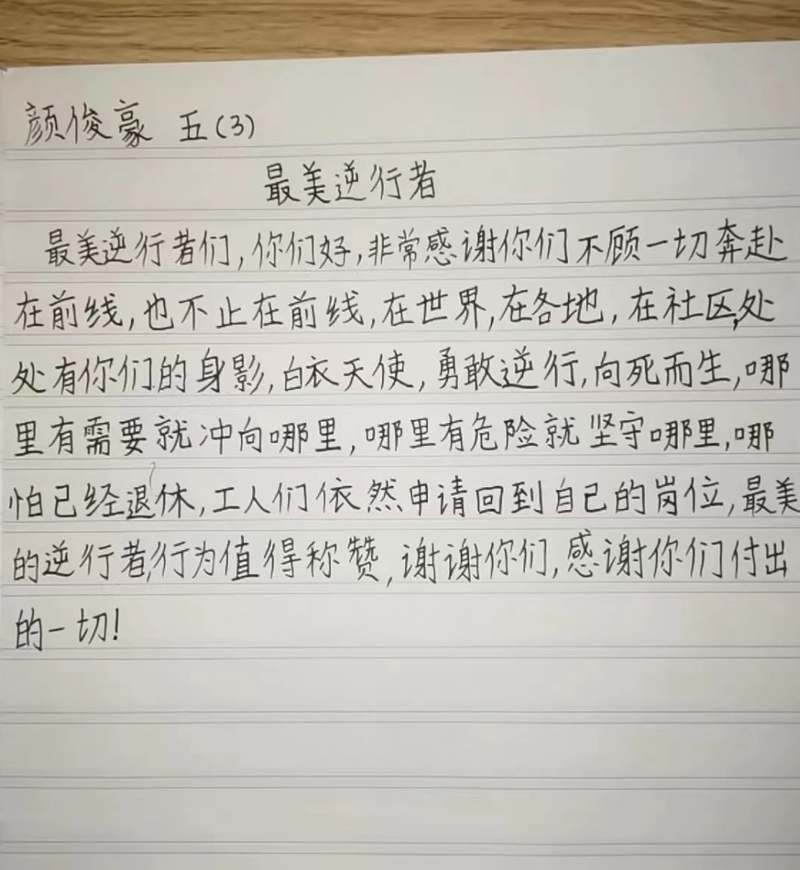 颜俊豪 五(3)
最美逆行者
最美逆行者们,你们好,非常感谢你们不顾一切奔赴
在前线,也不止在前线,在世界,在各地,在社区,处
处有你们的身影,白衣天使,勇敢逆行,向死而生,哪
里有需要就冲向哪里,哪里有危险就坚守哪里,哪
怕已经退休,工人们依然申请回到自己的岗位,最美
的逆行者,行为值得称赞,谢谢你们,感谢你们付出
的一切!